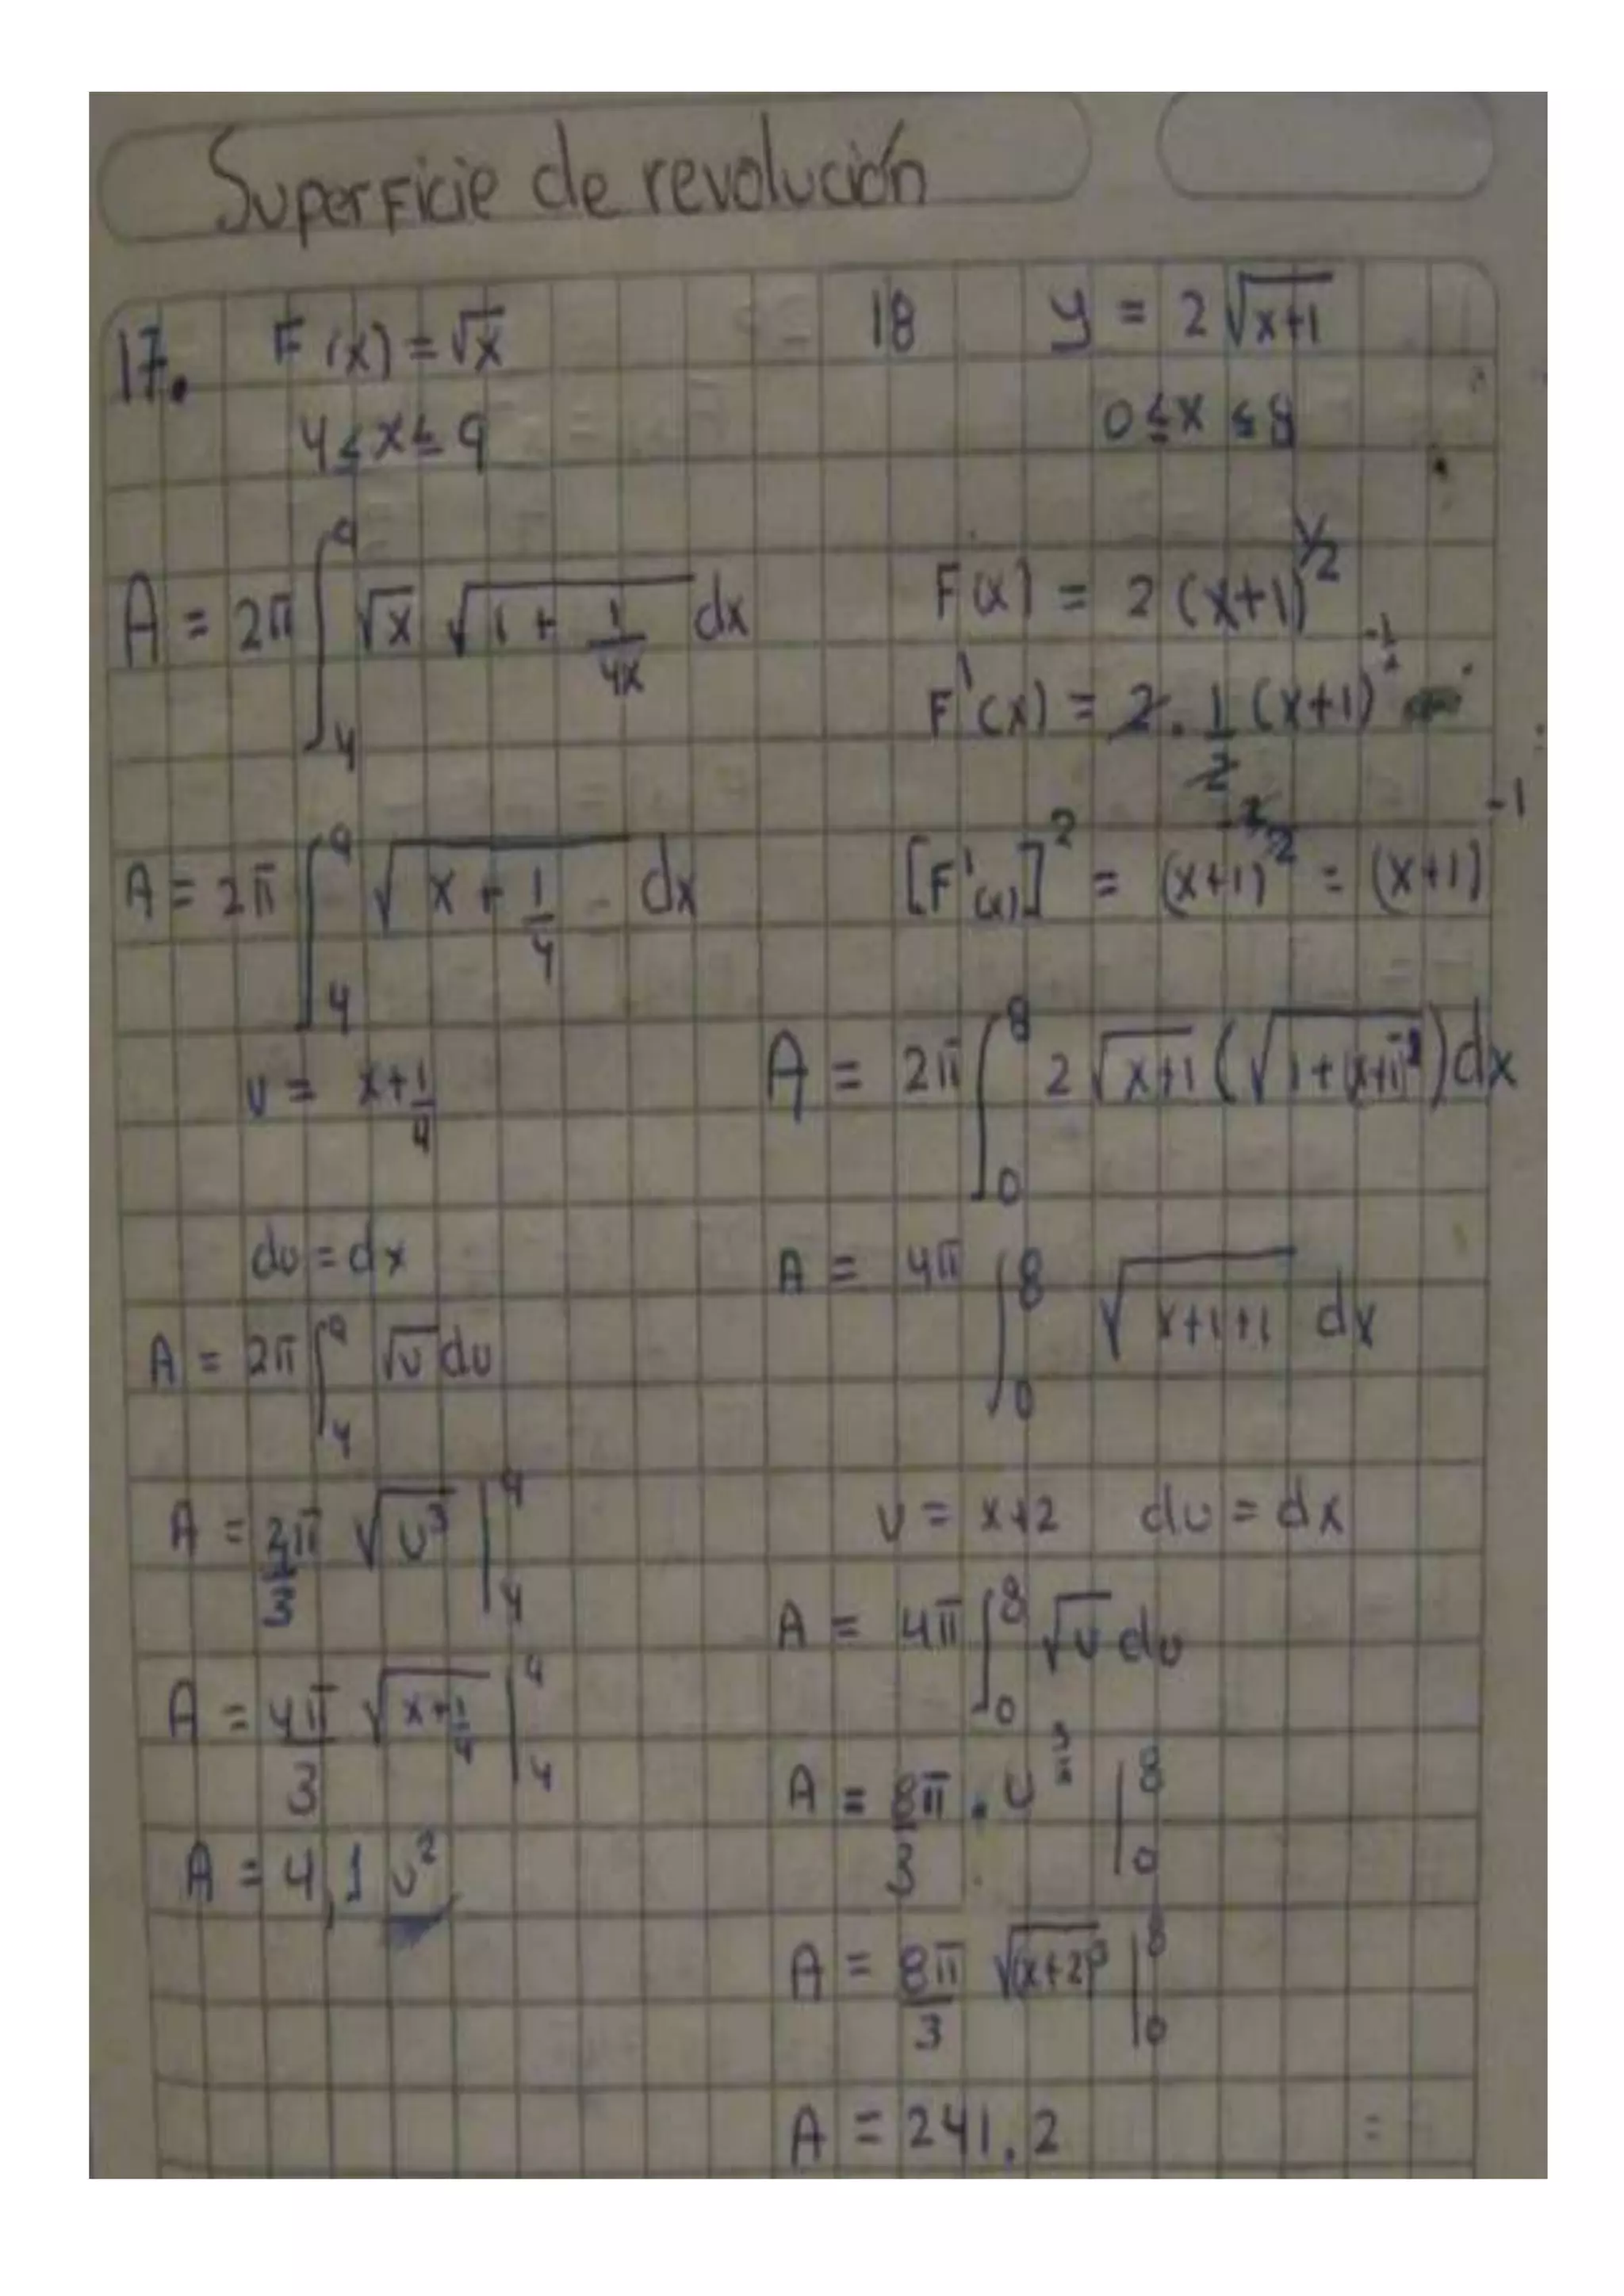 Superficie de revolución
17. F(x) = √x
4 ≤ x ≤ 9
A = 2π ∫₄⁹ √x √(1 + 1/4x) dx
A = 2π ∫₄⁹ √(x + 1/4) dx
u = x + 1/4
du = dx
A = 2π ∫₄⁹ √u du
A = 2π 2/3 √(u³) |₄⁹
A = 4π/3 √(x + 1/4) |₄⁹
A = 4,1 u²
18 y = 2√(x+1)
0 ≤ x ≤ 8
F(x) = 2 (x+1)^1/2
F'(x) = 2 . 1/2 (x+1)^-1/2
[F'(x)]² = (x+1)^-2/2 = (x+1)^-1
A = 2π ∫₀⁸ 2 √(x+1) (√(1+(x+1)^-1)) dx
A = 4π ∫₀⁸ √(x+1+1) dx
u = x+2 du = dx
A = 4π ∫₀⁸ √u du
A = 8π/3 . u^3/2 |₀⁸
A = 8π/3 √(x+2)³ |₀⁸
A = 241.2